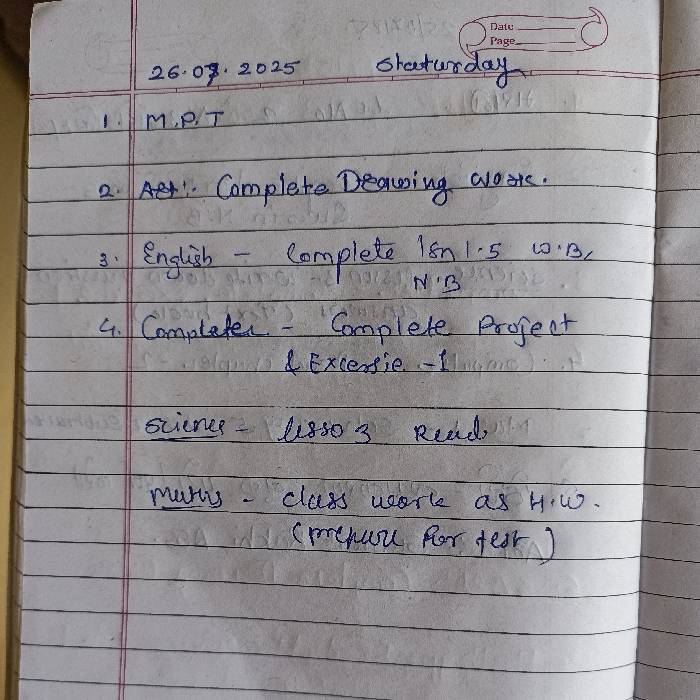 Date
Page
26.07.2025 Staturday
1. M.P.T
2. Art:- Complete Drawing work.
3. English - Complete lsn 1.5 W.B,
N.B
4. Completer - Complete Project
& Excersie -1
Science - lesso 3 Read
Maths - class work as H.W.
(prepare for test)